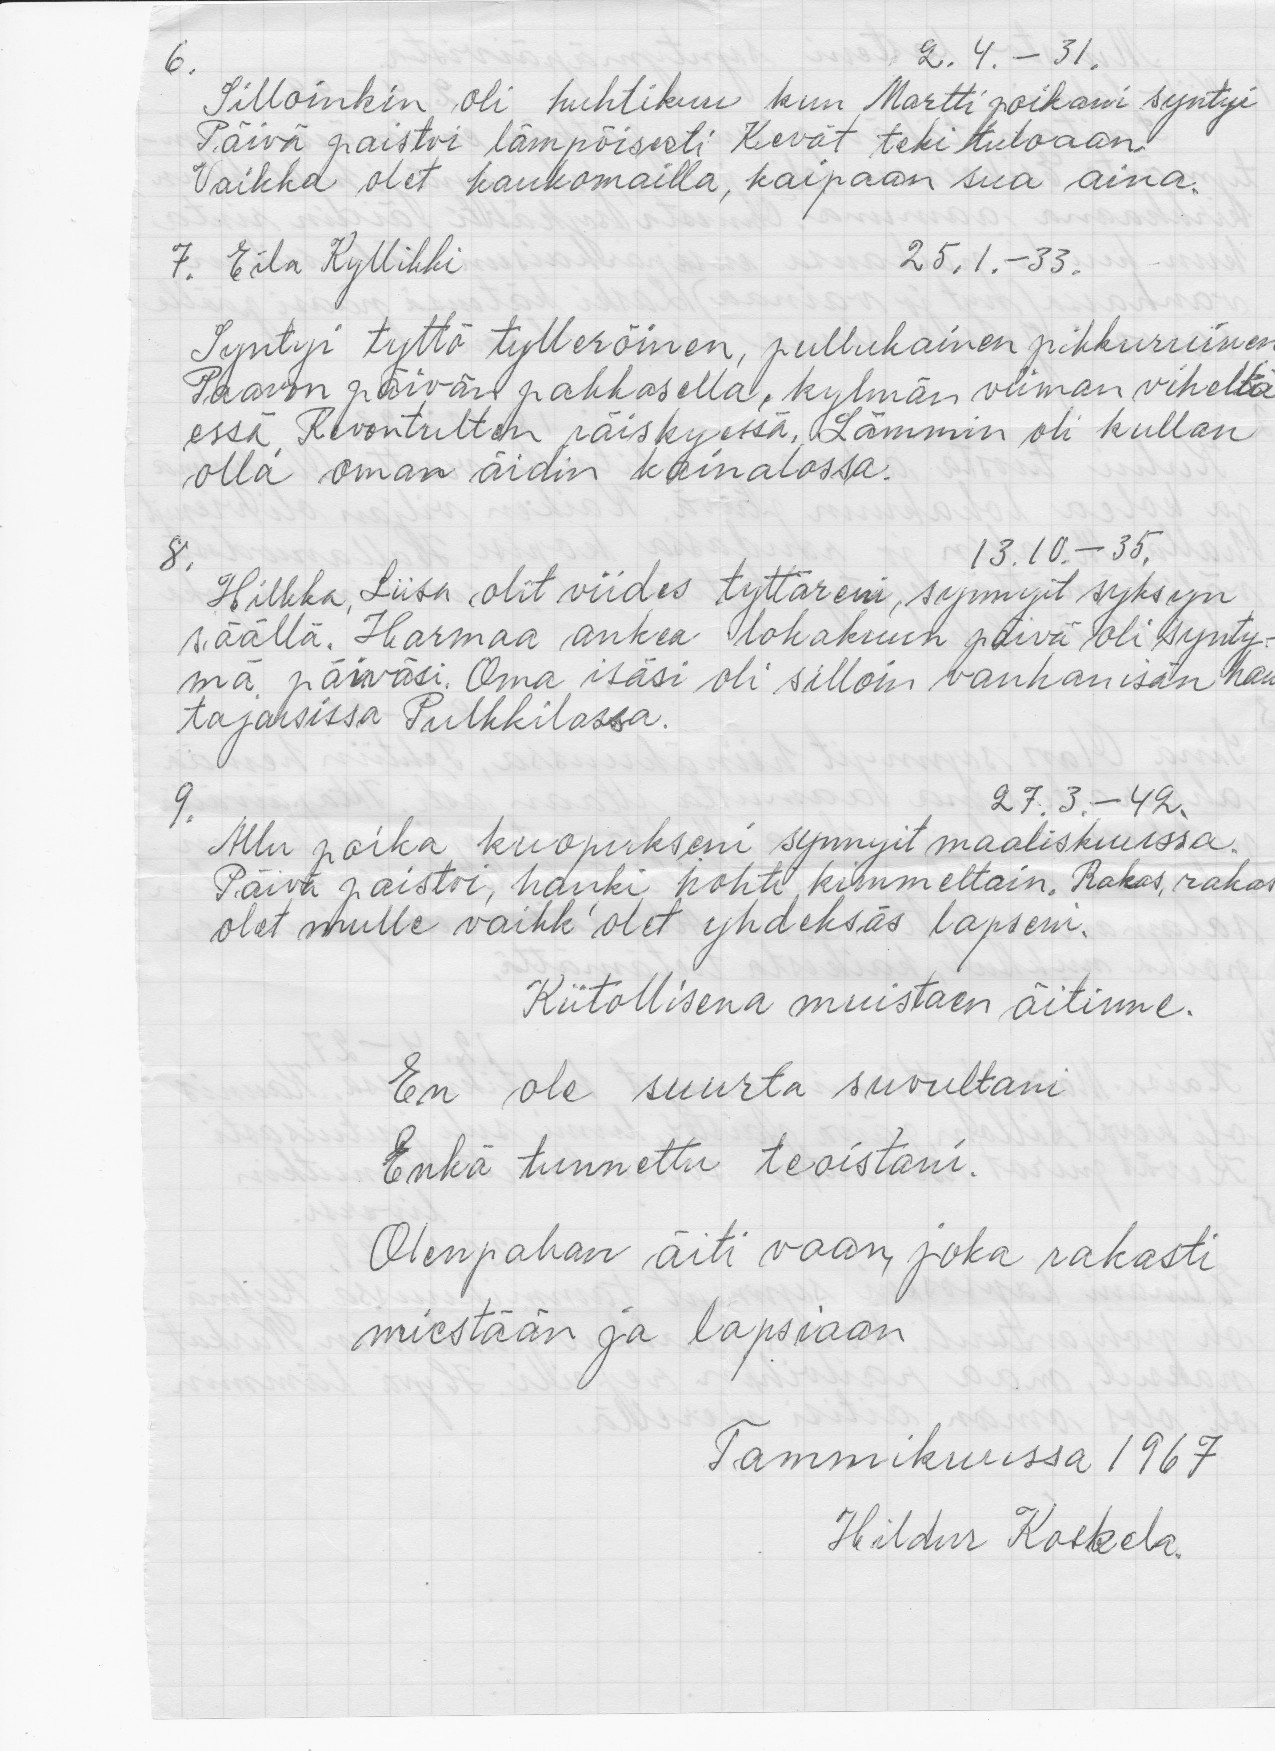 6. 2.4.-31.
Silloinkin oli huhtikuu kun Martti poikani syntyi
Päivä paistoi lämpöisesti Kevät teki tuloaan
Vaikka olet kaukomailla, kaipaan sua aina.
7. Eila Kyllikki 25.1.-33.
Syntyi tyttö tylleröinen, pullukainen pikkuruinen
Paavon päivän pakkasella, kylmän viiman viheltä
essä, Revontulten räiskyessä. Lämmin oli kullan
olla oman äidin kainalossa.
8. 13.10.-35.
Hilkka, Liisa olit viides tyttäreni, synnyit syksyn
säällä. Harmaa ankea lokakuun päivä oli synty-
mä päiväsi. Oma isäsi oli silloin vanhanisän hau
tajaisissa Pulkkilassa.
9. 27.3.-42.
Allu poika kuopukseni synnyit maaliskuussa.
Päivä paistoi, hanki hohti kimmeltäin. Rakas, rakas
olet mulle vaikk' olet yhdeksäs lapseni.
Kiitollisena muistaen äitinne.
En ole suurta suvultani
Enkä tunnettu teoistani.
Olenpahan äiti vaan, joka rakasti
miestään ja lapsiaan
Tammikuussa 1967
Hildur Koskela.